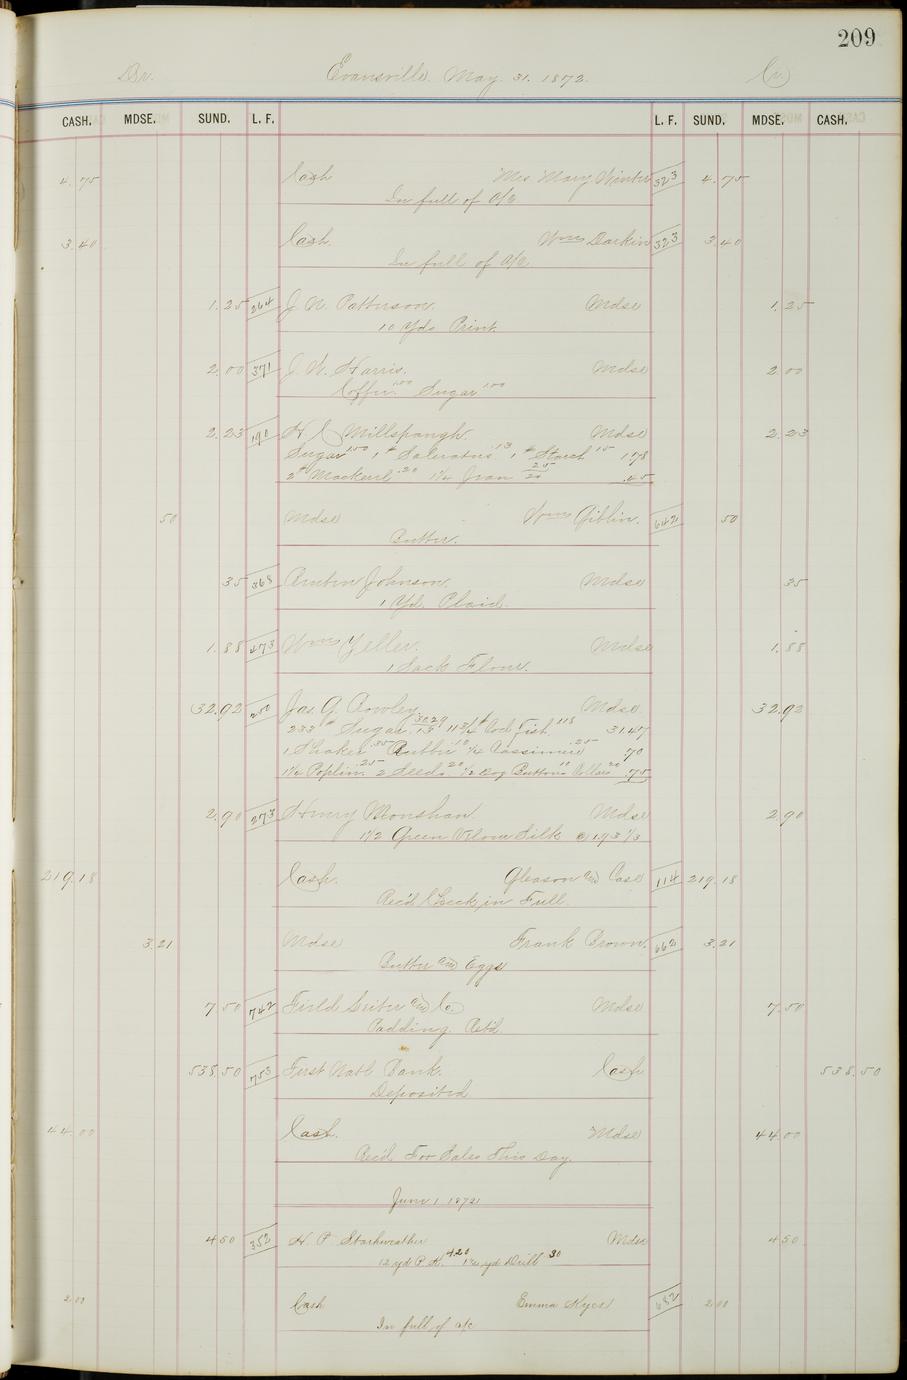 209
Dr. Evansville May 31. 1872. Cr
CASH. MDSE. SUND. L. F. L. F. SUND. MDSE. CASH.
4.75 Cash Mrs Mary Winter 323 4.75
In full of a/c
3.40 Cash. Wm Darkin 323 3.40
In full of a/c
1.25 264 J. N. Patterson. Mdse 1.25
10 Yds Print.
2.00 371 J. W. Harris. Mdse 2.00
Coffee 1.00 Sugar 1.00
2.23 190 H C Millspaugh. Mdse 2.23
Sugar 1.00 1# Saleratus .13 1# Starch 15 1.78
2# Mackerel .20 1 1/4 Jean 25/20 .45
50 Mdse Wm Giblin. 642 50
Butter.
35 368 Johnson. Mdse 35
1 Yd. Plaid.
1.88 473 Wm Yeller. Mdse 1.88
1 Sack Flour.
32.92 250 Jas. G. Rowley. Mdse. 32.92
233# Sugar 13 11 3/4# Cod Fish. 1.18 31.47
1 Shaker .35 10 1/4 Cassimere .25 70
1 1/4 Poplin. .25 2 Seeds 20 1/2 Doz Buttons 10 Collars 20 .75
2.90 273 Henry Monshan. Mdse 2.90
1 1/2 Green Silk @ 1.93 1/3
219.18 Cash. Gleason and Case 114 219.18
Rec'd Check in Full.
3.21 Mdse Frank Brown. 662 3.21
Butter and Eggs
7.50 742 Field Leiter and Co. Mdse 7.50
Padding. Retd.
538.50 753 First Natl Bank. Cash 538.50
Deposited
44.00 Cash. Mdse 44.00
Rec'd For Sales This Day.
June 1 1872
4.50 352 H. P. Starkweather Mdse 4.50
12 yd P. K. 4.20 yd Drill 30
2.00 Cash Emma Kyes 682 2.00
In full of a/c